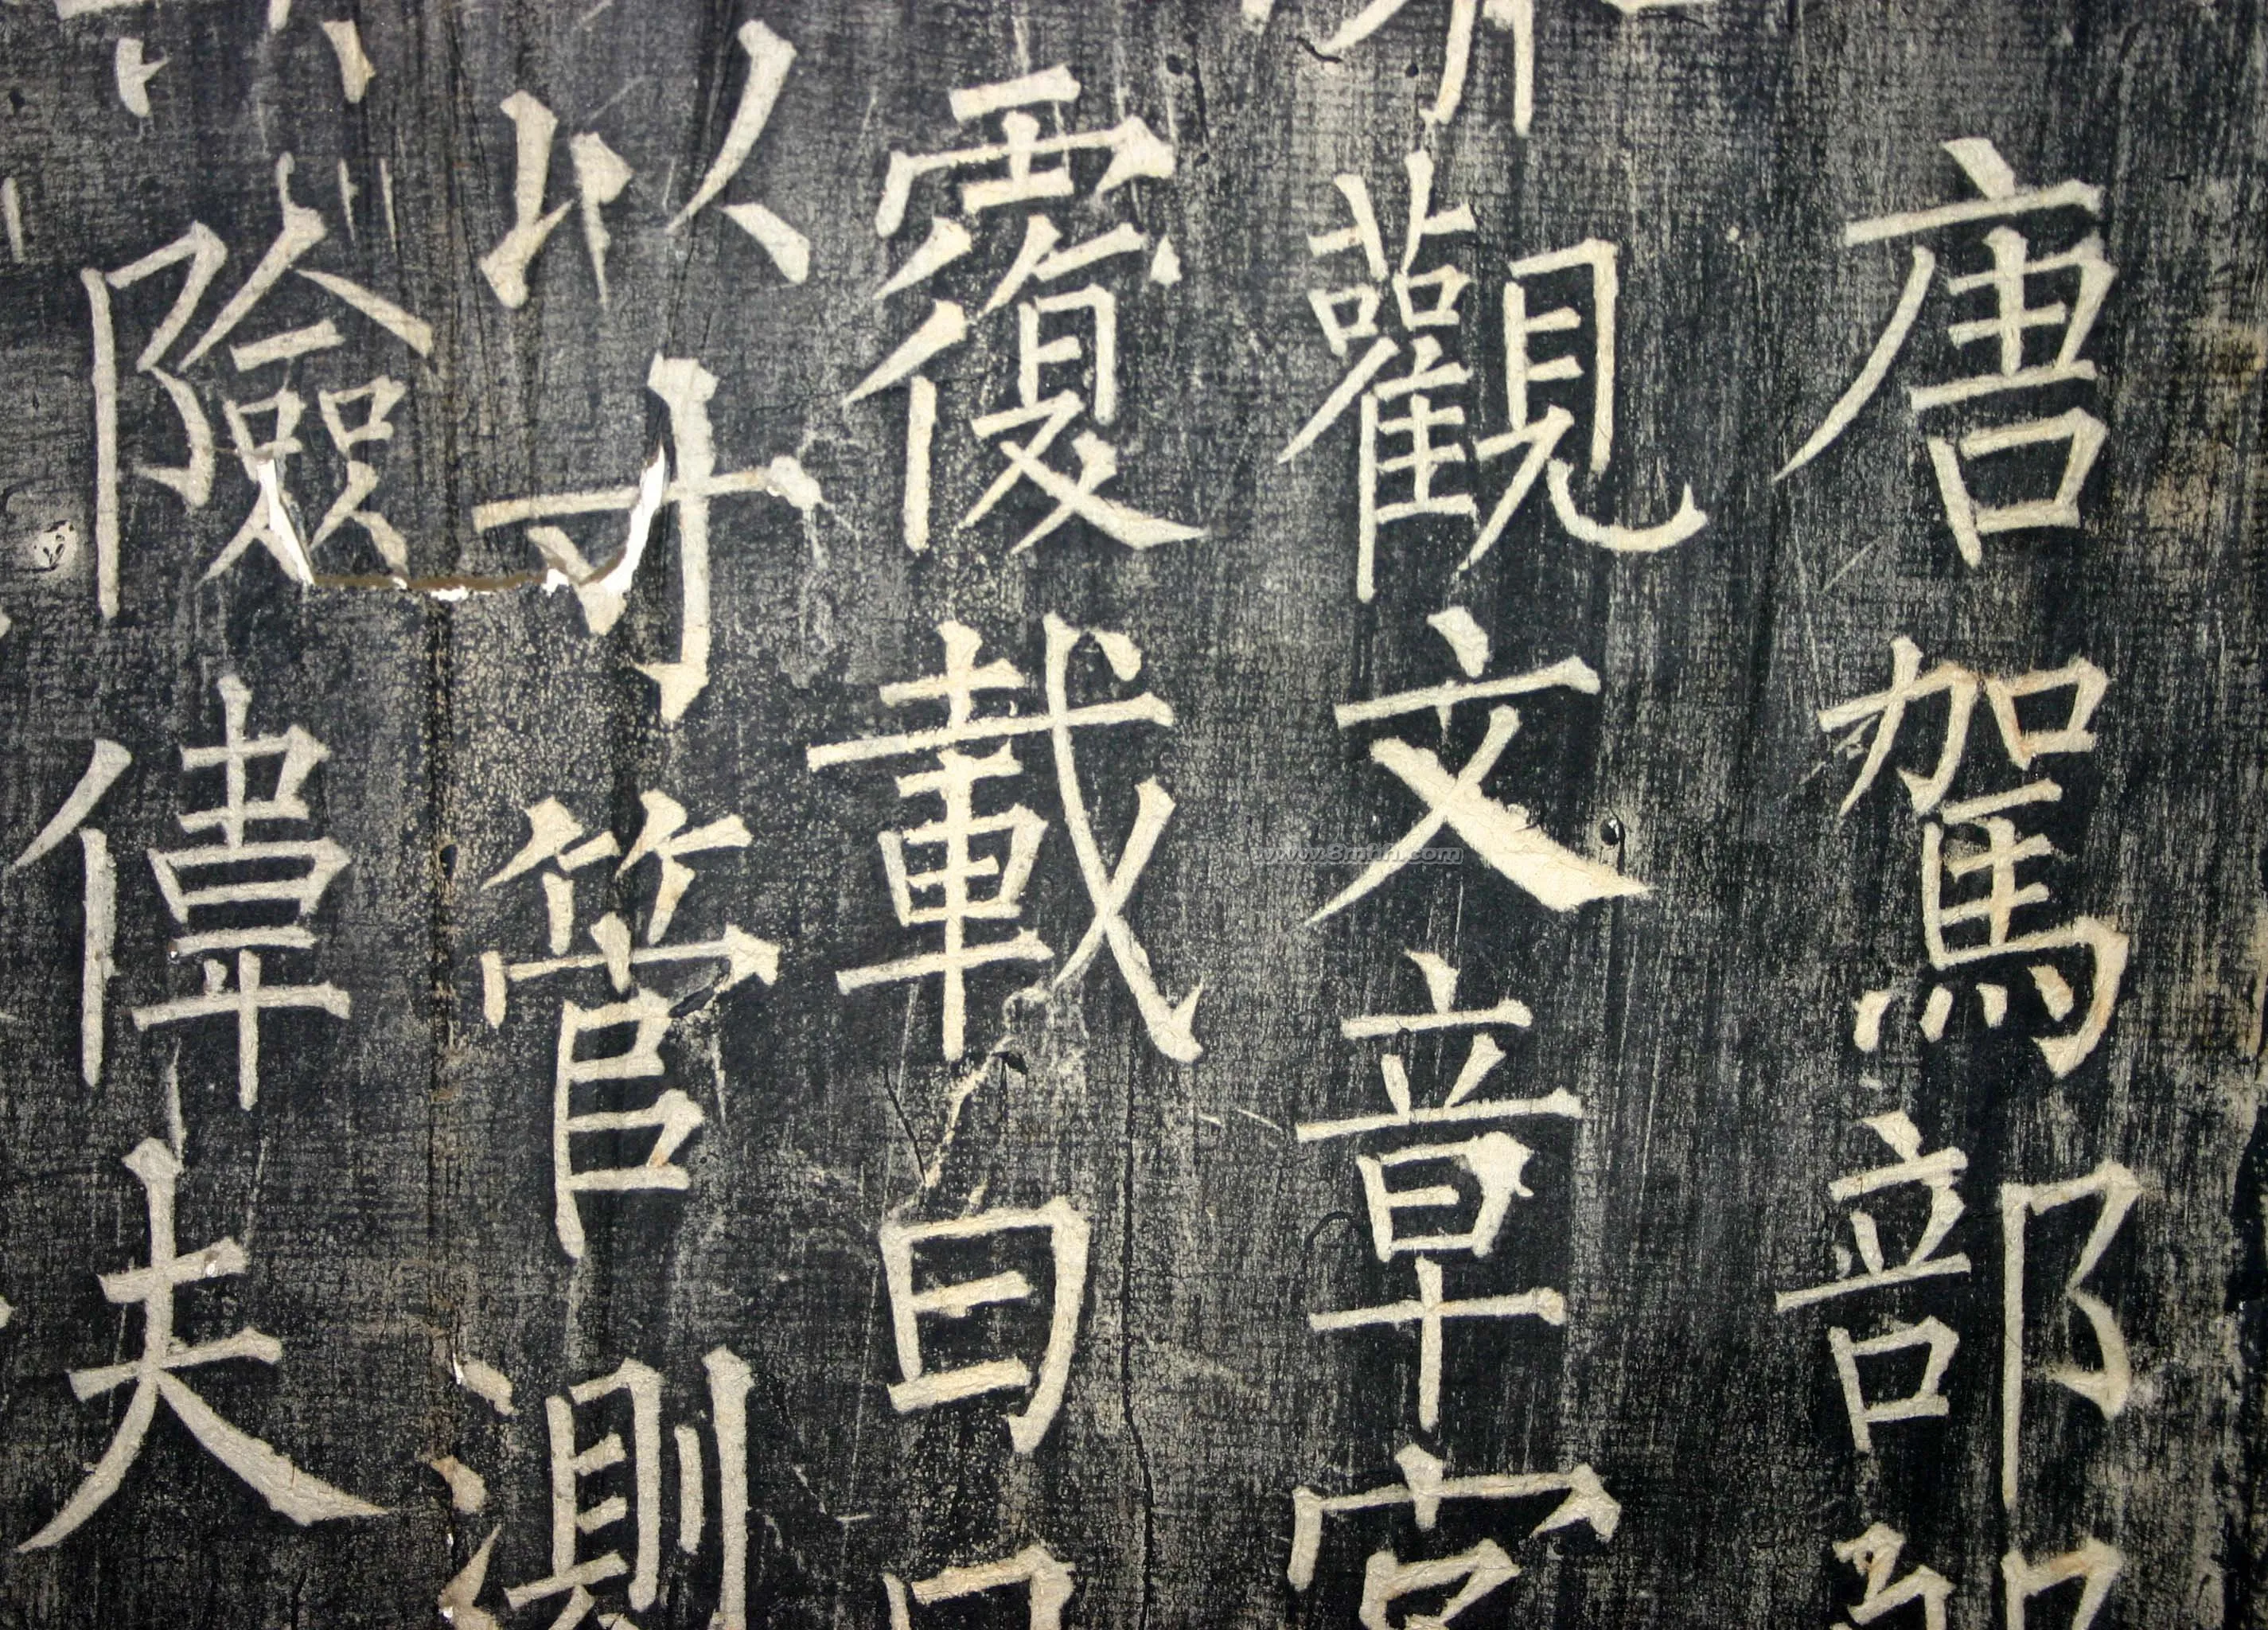 唐駕部
觀文章
覆載日
以寸管測
險偉夫